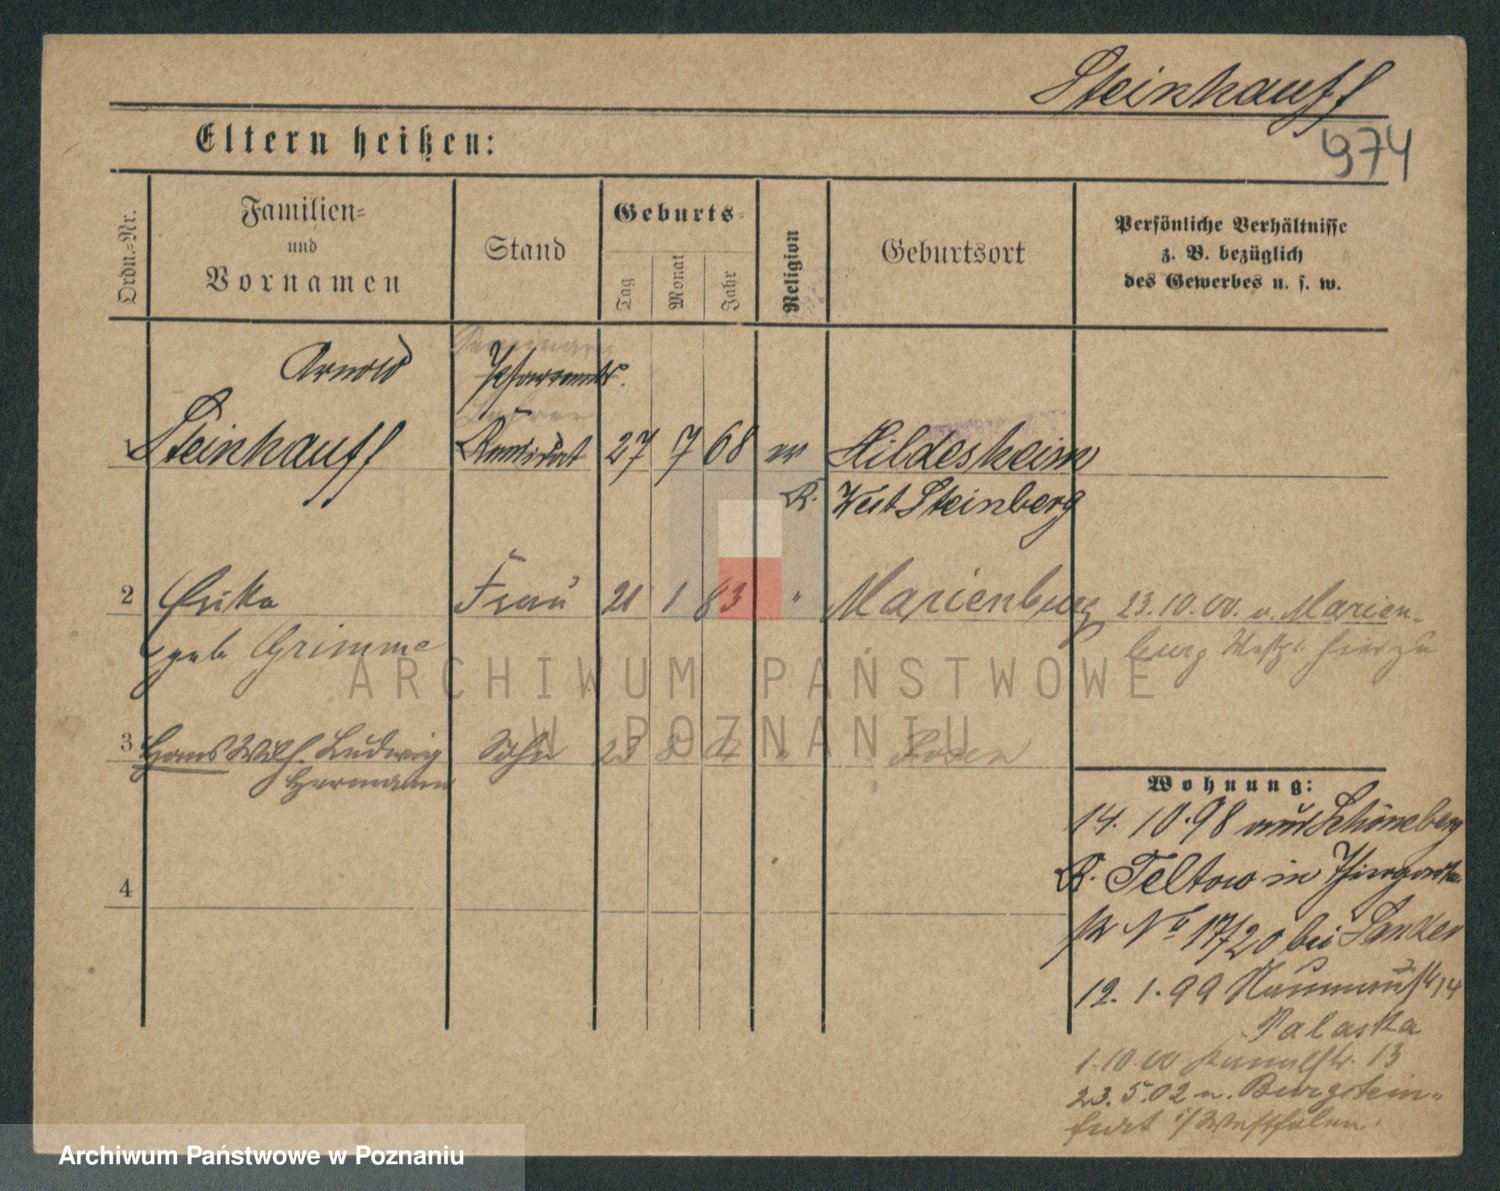 Steinhauff
974
Eltern heißen:
Ordn.-Nr.
Familien-
und
Vornamen
Stand
Geburts-
Tag
Monat
Jahr
Religion
Geburtsort
Persönliche Verhältnisse
z. B. bezüglich
des Gewerbes u. s. w.
Arnold
Pfarramts.
1 Steinhauff Kandidat 27 7 68 ev Hildesheim
K. Steinberg
2 Erika Frau 21 1 83 " Marienburg 23.10.00. v. Marien-
geb Grimme burg
3 Hans Wilh. Ludwig Sohn 8 Posen
Hermann
4
Wohnung:
14. 10. 98 aus Schöneberg
K. Teltow in
No 17/20 bei Sander
12. 1. 99 14
1.10.00 13
23.5.02 n. Burgstein-
furt i/Westfalen.
ARCHIWUM PAŃSTWOWE
W POZNANIU
Archiwum Państwowe w Poznaniu